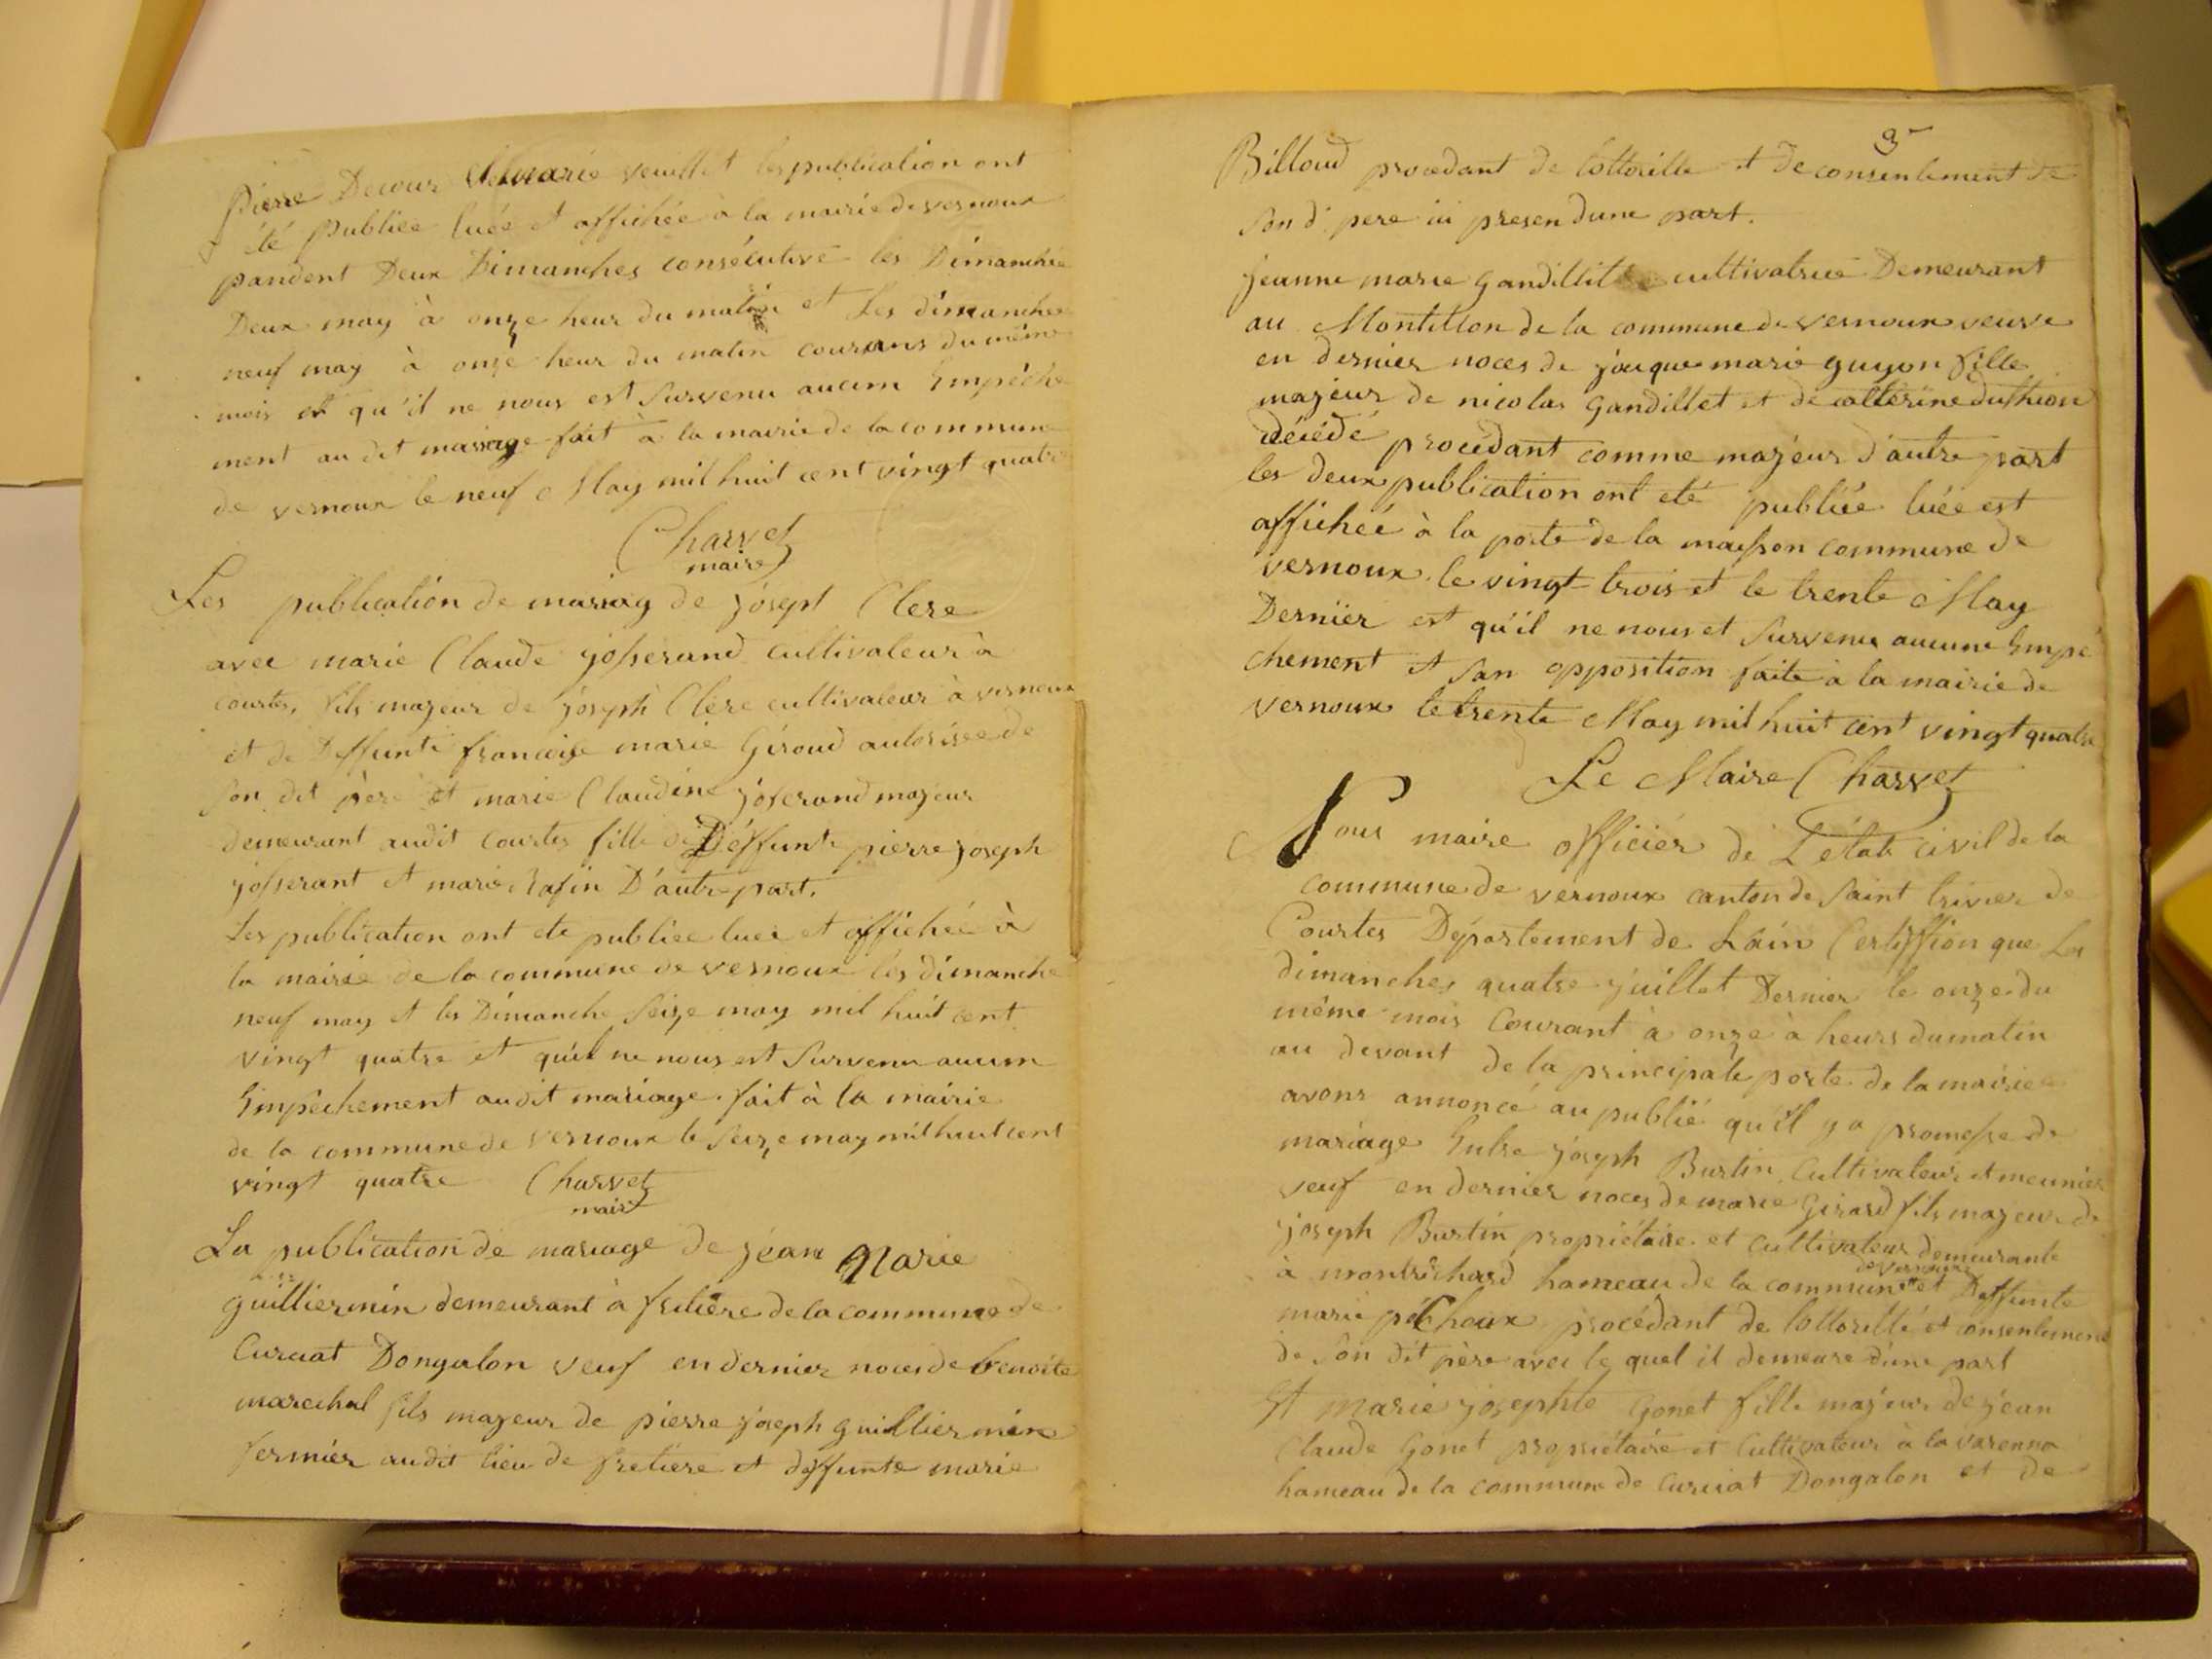 Pierre Decour et marie veuillet les publication ont
été Publiée luée et affichée à la mairie de vernoux
pandent Deux Dimanches consécutive les Dimanche
Deux may à onze heur du matin et Les dimanche
neuf may à onze heur du matin courans du même
mois et qu'il ne nous est Survenu aucun Empéche
ment au dit mariage fait à la mairie de la commune
de vernoux le neuf May mil huit cent vingt quatre
Charvet
maire
Les publication de mariag de josept Clere
avec marie Claude josserand cultivateur à
courtes, fils majeur de joseph Clere cultivateur à vernoux
et de Deffunte francoise marie Giroud autorisée de
Son dit père et marie Claudine josserand majeur
demeurant audit Courtes fille de Déffunt pierre joseph
josserant et marie Rafin D'autre part.
Les publication ont ete publiée luée et affichée à
la mairie de la commune de vernoux les dimanche
neuf may et les Dimanche Seize may mil huit cent
vingt quatre et qu'il ne nous est Survenu aucun
Empêchement audit mariage. fait à la mairie
de la commune de vernoux le Seize may mil huit cent
vingt quatre Charvet
maire
La publication de mariage de jéan Marie
guilliermin demeurant à fretière de la commune de
Curciat Dongalon veuf en dernier noces de benoite
marechal fils majeur de pierre joseph guilliermin
fermier audit lieu de fretiere et deffunte marie
3
Billoud procedant de lottorille et de consentement de
Son d. pere ici presen dune part.
jeanne marie gandillet cultivatrice Demeurant
au Montillon de la commune de vernoux veuve
en dernier noces de jacque marie guyon fille
majeur de nicolas gandillet et de catterine duthion
décédé procédant comme majeur d'autre part
les deux publication ont eté publiée luée est
affichée à la porte de la maison commune de
vernoux le vingt trois et le trente May
Dernier est qu'il ne nous et Survenu aucune Empé
chement et San opposition faite à la mairie de
vernoux le trente May mil huit cent vingt quatre
Le Maire Charvet
Nous maire officier de L'état civil de la
commune de vernoux canton de Saint trivier de
Courtes Département de Lain Certiffion que Les
dimanches quatre juillet Dernier le onze du
même mois Courant à onze à heurs du matin
au devant de la principale porte de la mairie
avons annoncé au publié qu'il y a promesse de
mariage Entre joseph Burtin Cultivateur et meunier
veuf en dernier noces de marie Girard fils majeur de
joseph Burtin propriétaire et Cultivateur demeurante
à montrichard hameau de la commune de vernoux et Deffunte
marie péChoux procédant de lottoritté et consentement
de Son dit père avec le quel il demeure d'une part
Et Marie josephte Gonet fille majeur de jéan
Claude Gonet propriétaire et Cultivateur à la varenna
hameau de la commune de Curciat Dongalon et de